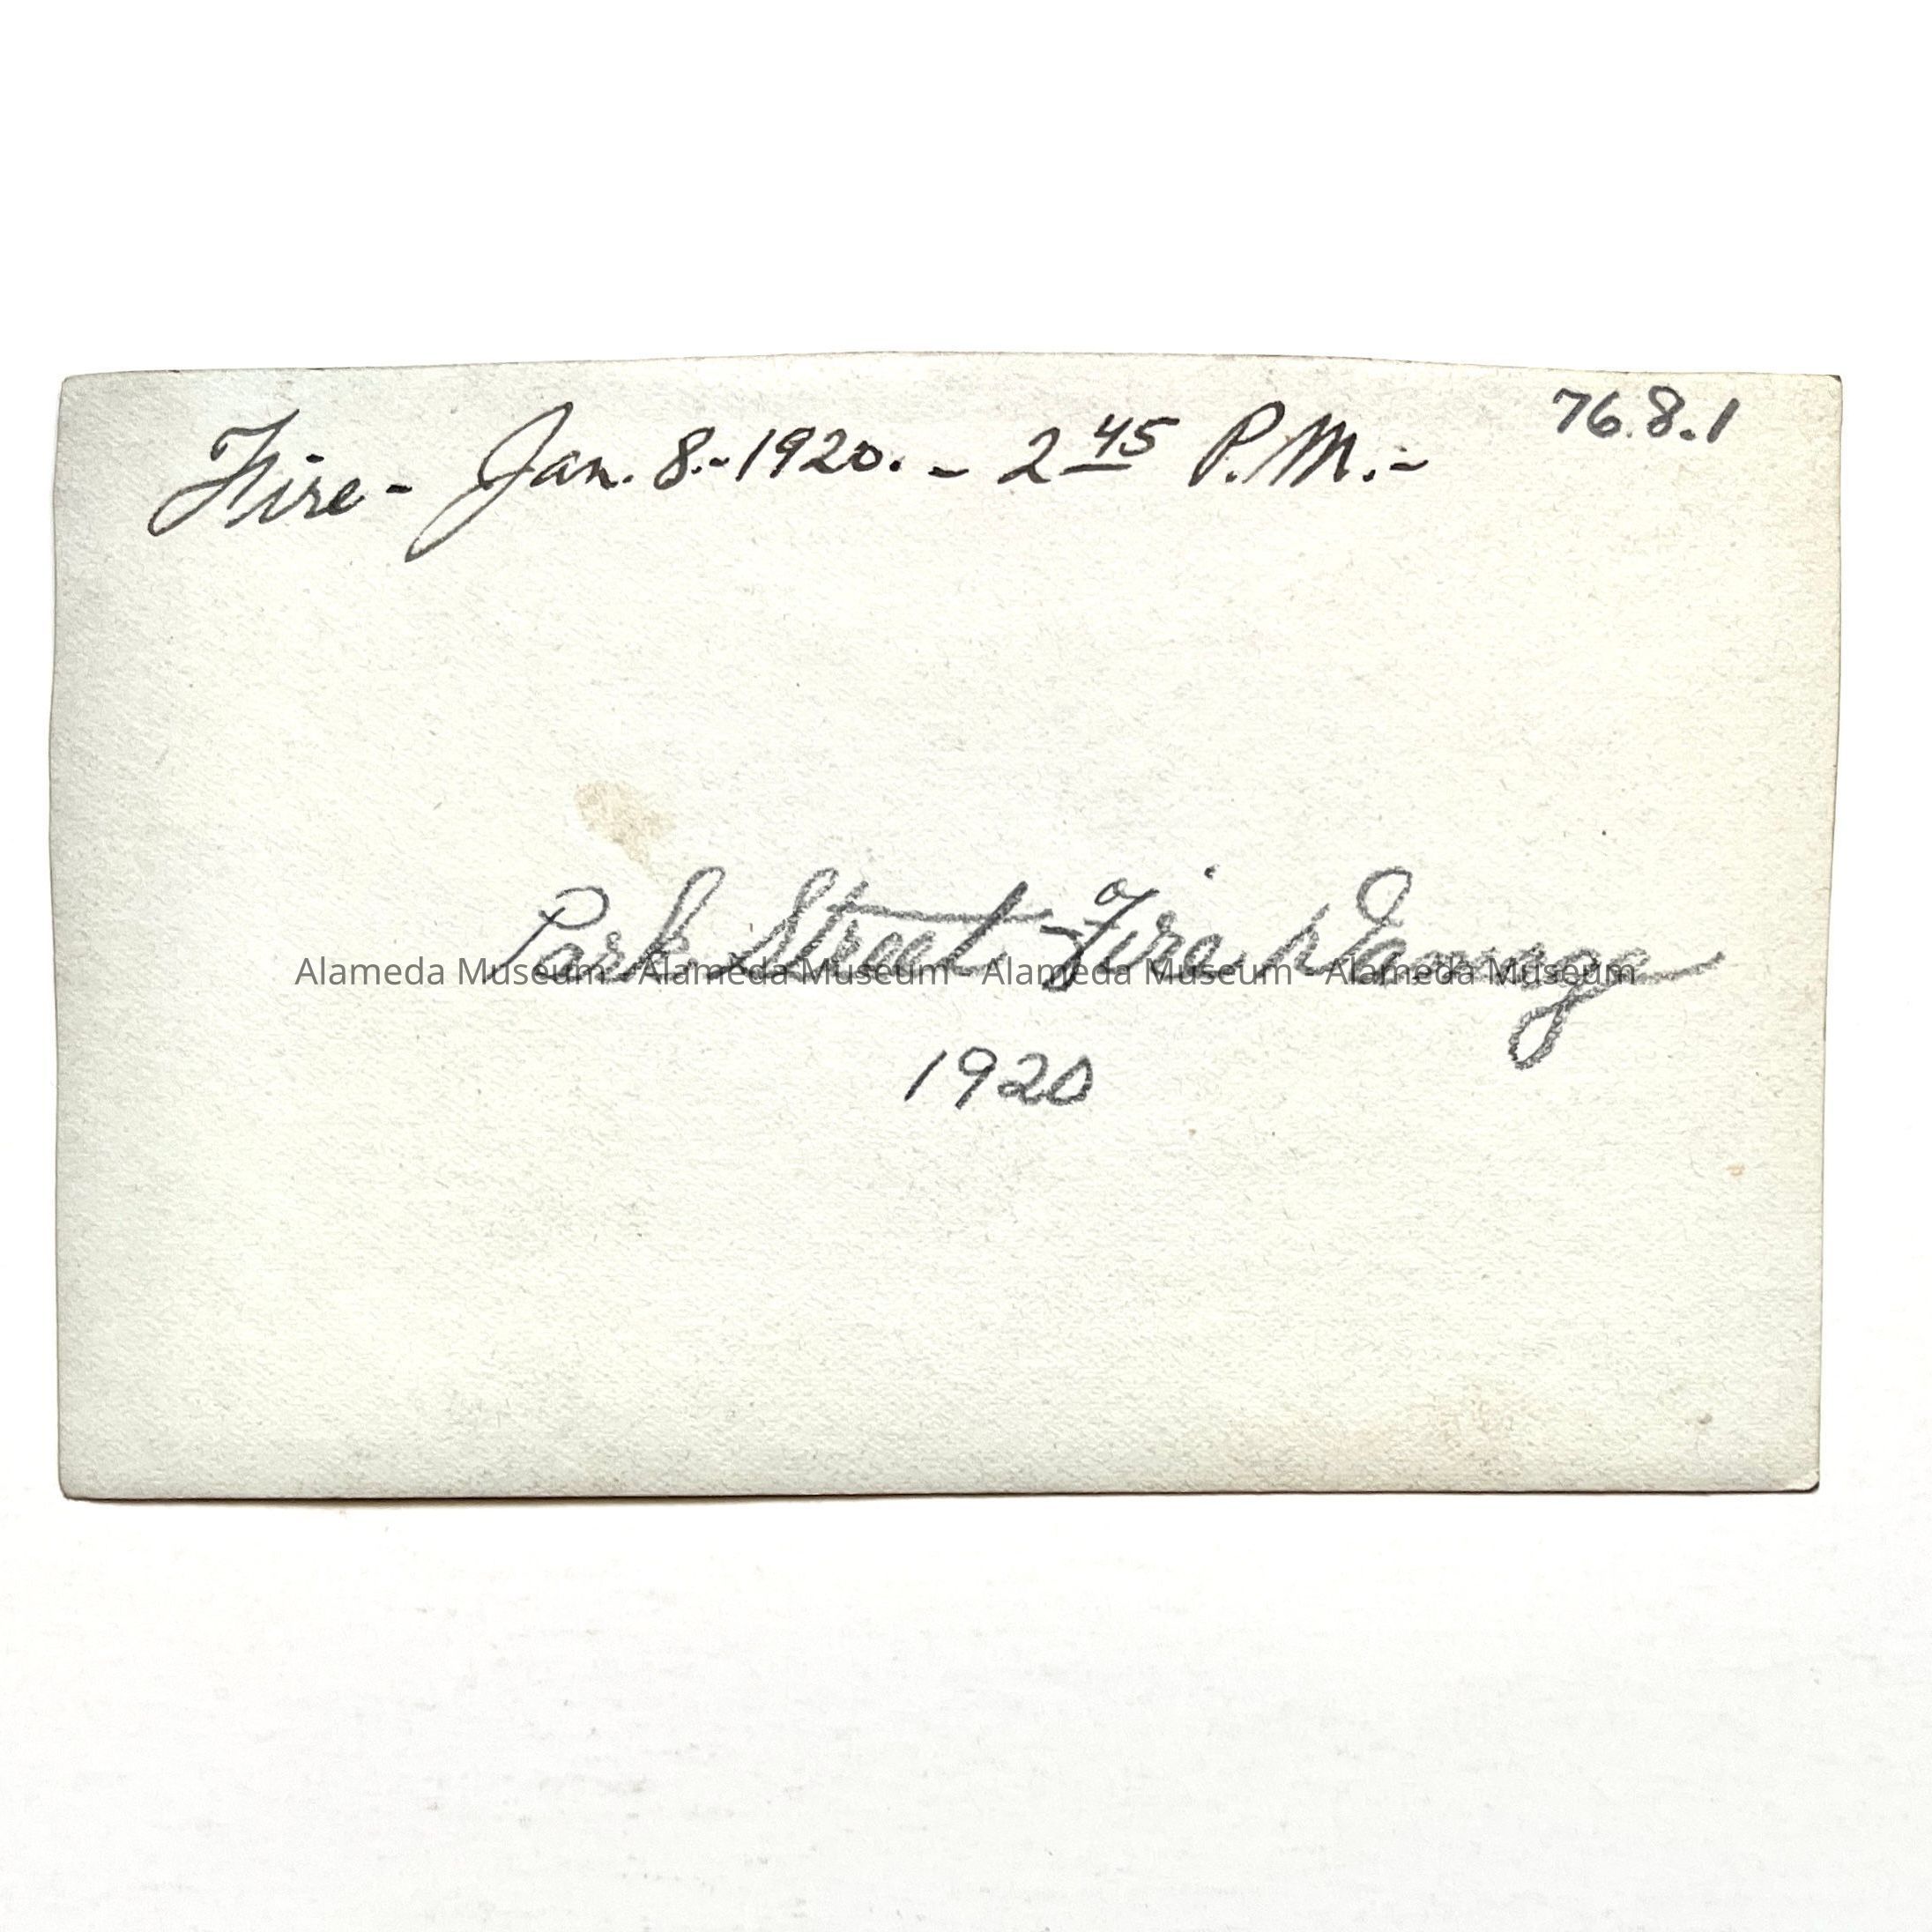 76.8.1
Fire - Jan. 8.-1920. - 2 45 P.M.-
Park Street Fire Damage
Alameda Museum - Alameda Museum - Alameda Museum - Alameda Museum
1920